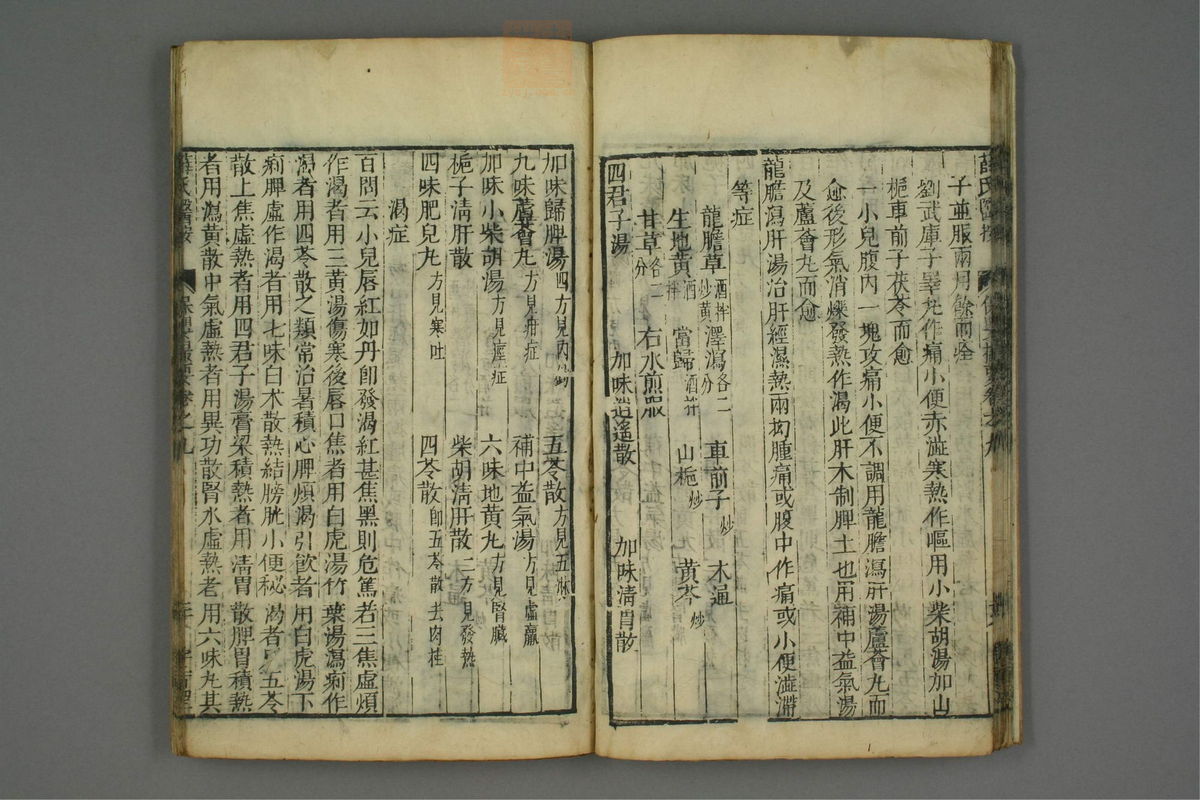 子並服兩月餘而痊
劉武庫子睪丸作痛小便赤澁寒熱作嘔用小柴胡湯加山
梔車前子茯苓而愈
一小兒腹內一塊攻痛小便不調用龍膽瀉肝湯蘆薈丸而
愈後形氣消爍發熱作渴此肝木制脾土也用補中益氣湯
及蘆薈丸而愈
龍膽瀉肝湯治肝經濕熱兩拗腫痛或腹中作痛或小便澁滯
等症
龍膽草酒拌炒黃 澤瀉各二分 車前子炒 木通
生地黃酒拌 當歸酒拌 山梔炒 黃芩炒
甘草各二分 右水煎服
四君子湯 加味逍遙散 加味清胃散
加味歸脾湯四方見內釣 五苓散方見五淋
九味蘆薈丸方見疳症 補中益氣湯方見虛羸
加味小柴胡湯方見痙症 六味地黃丸方見腎臟
梔子清肝散 柴胡清肝散二方見發熱
四味肥兒丸方見寒吐 四苓散即五苓散去肉桂
渴症
百問云小兒唇紅如丹即發渴紅甚焦黑則危篤若三焦虛煩
作渴者用三黃湯傷寒後唇口焦者用白虎湯竹葉湯瀉痢作
渴者用四苓散之類常治暑積心脾煩渴引飲者用白虎湯下
痢脾虛作渴者用七味白朮散熱結膀胱小便秘渴者 五苓
散上焦虛熱者用四君子湯膏粱積熱者用清胃散脾胃積熱
者用瀉黃散中氣虛熱者用異功散腎水虛熱者用六味丸其
薛氏醫按 保嬰撮要卷之九